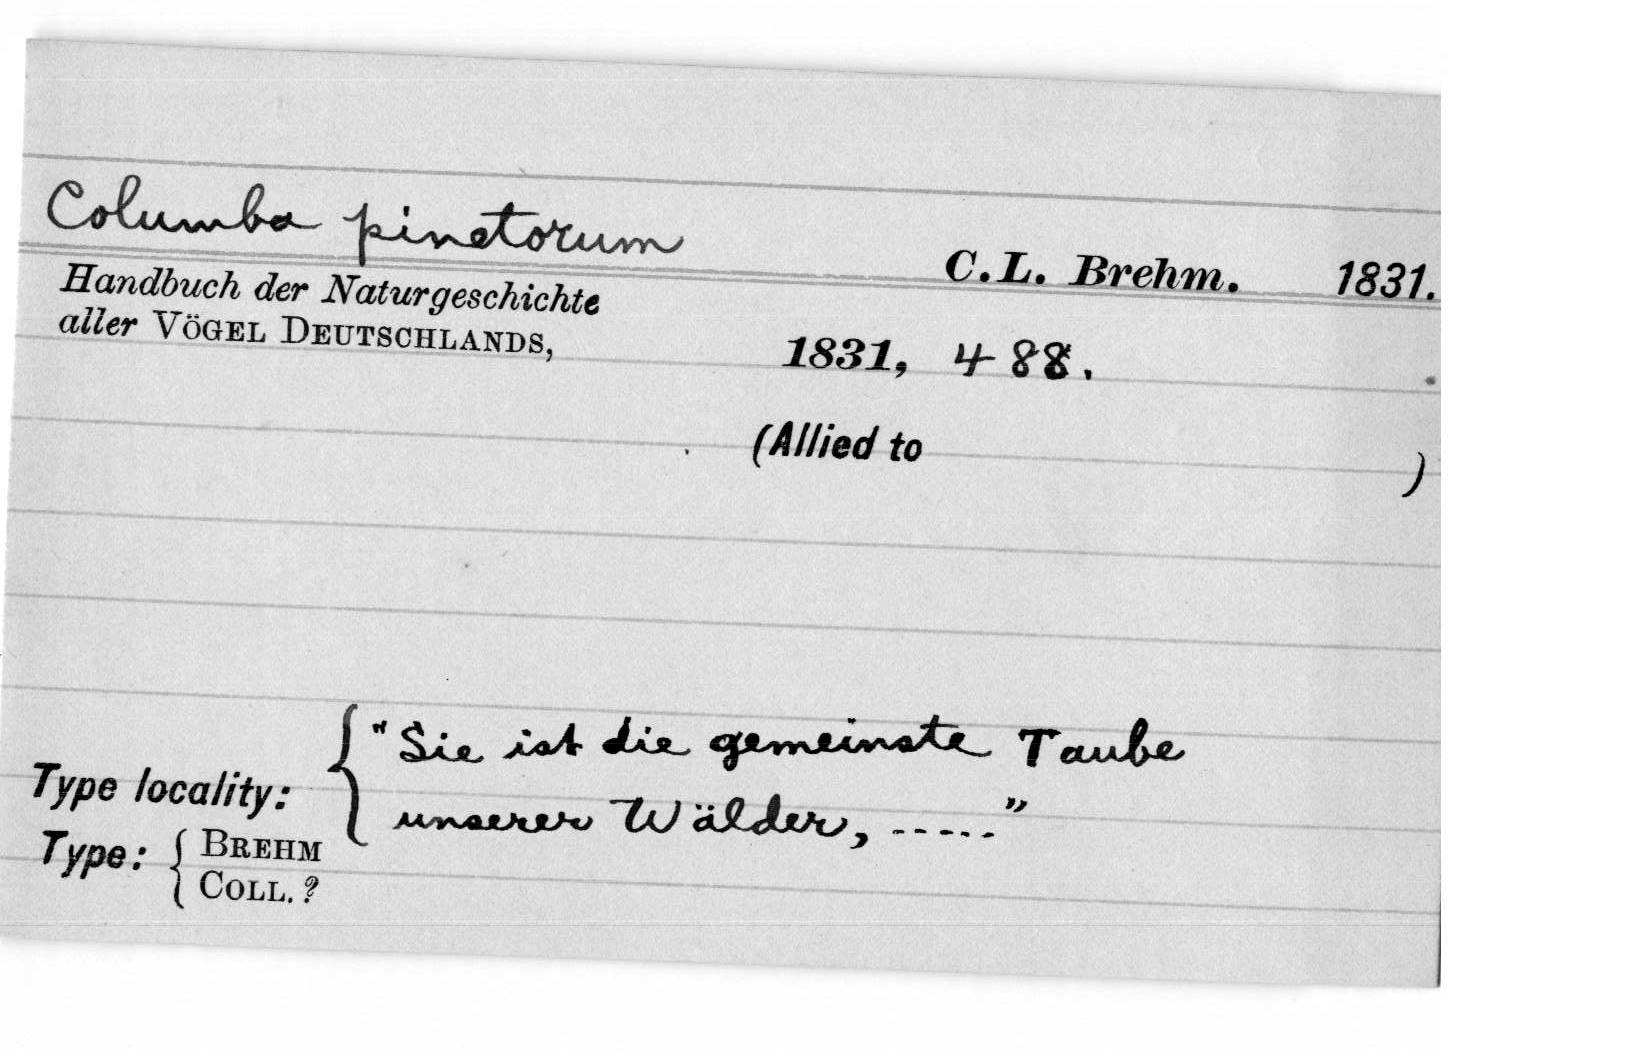 Columba pinetorum C.L. Brehm. 1831.
Handbuch der Naturgeschichte
aller VÖGEL DEUTSCHLANDS, 1831, 488.
(Allied to )
Type locality: { "Sie ist die gemeinste Taube
unserer Wälder, -----"
Type: { BREHM
COLL. ?